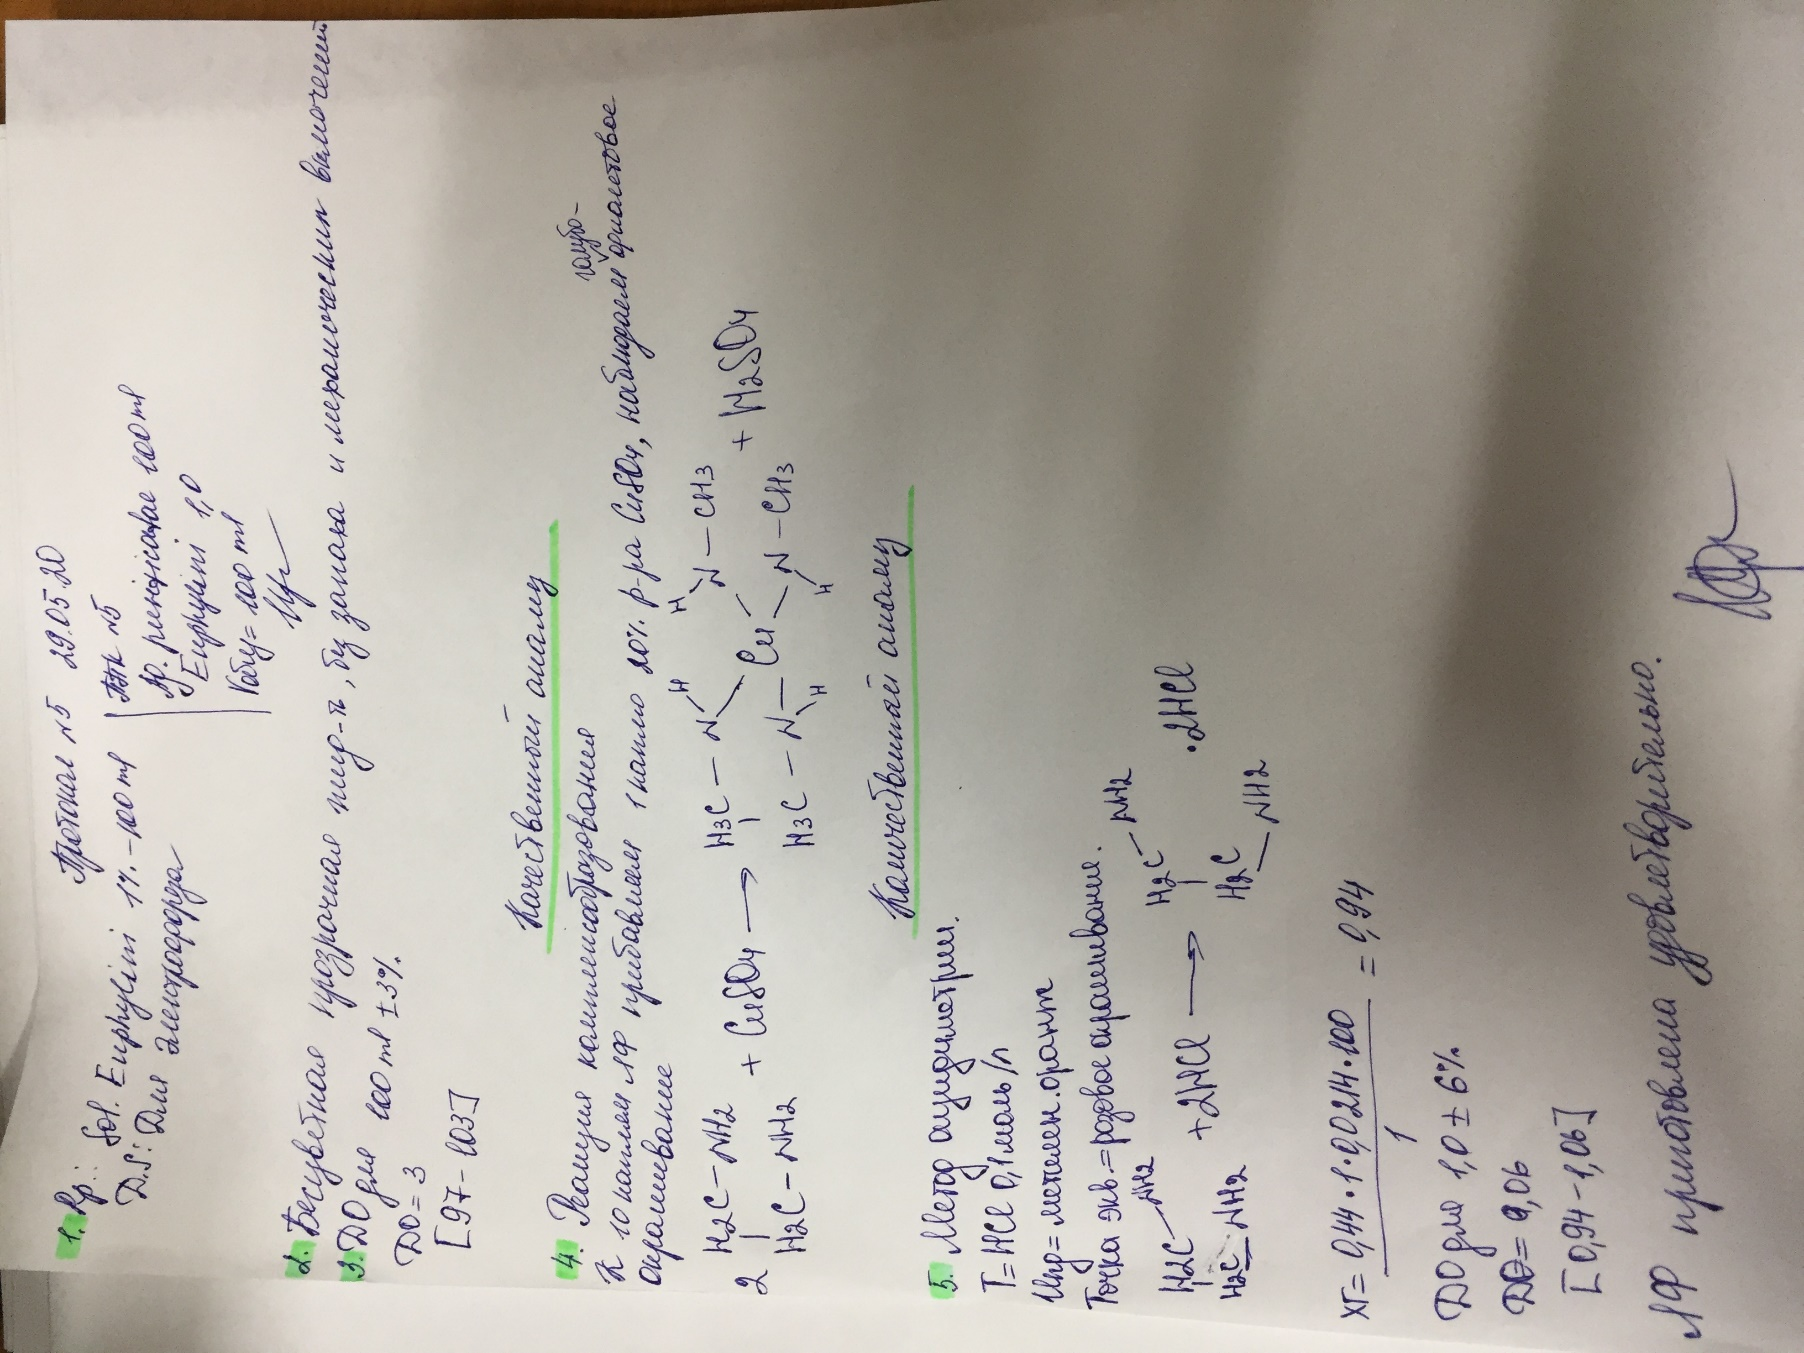 Протокол №5 29.05.20
1. Rp.: Sol. Euphylini 1% - 100 ml
D.S: Для электрофореза
ППК №5
Aq. purificatae 100 ml
Euphylini 1,0
Vобщ = 100 ml
2. Бесцветная прозрачная жид-ть, без запаха и механических включений
3. ДО для 100 ml ± 3%.
ДО = 3
[97-103]
Качественный анализ
4. Реакция комплексобразования
К 10 каплям ЛФ прибавляем 1 каплю 20% р-ра CuSO4, наблюдаем голубо-фиолетовое
окрашивание
2 H2C-NH2
H2C-NH2 + CuSO4 → H3C-N H
H3C-N H Cu H N-CH3
H N-CH3 + H2SO4
Количественный анализ
5. Метод ацидиметрии.
T = HCl 0,1 моль/л
Инд = метилен. оранж
Точка экв. = розовое окрашивание.
H2C-NH2
H2C-NH2 + 2HCl → H2C-NH2
H2C-NH2 · 2HCl
Xг = 0,44·1·0,0214·100 / 1 = 0,94
ДО для 1,0 ± 6%
ДО = 0,06
[0,94-1,06]
ЛФ приготовлена удовлетворительно.